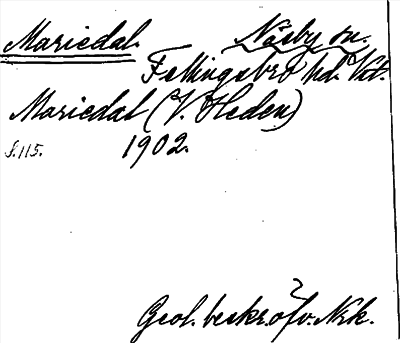 Mariedal. Näsby sn.
Fellingsbro hd. Vst.
Mariedal (V. Heden)
S. 115. 1902.
Geol. beskr. öfv. Nrk.